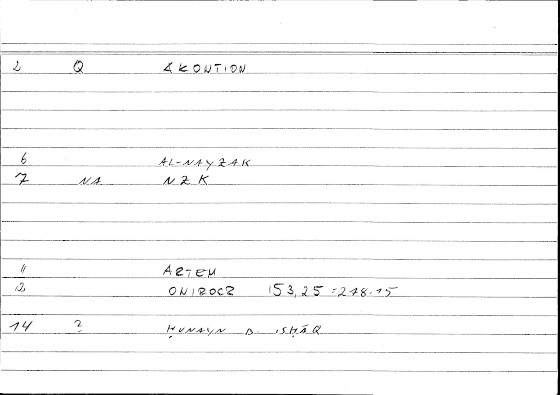 2 Q AKONTION
6 AL-NAYZAK
7 NA NZK
11 ARTEM
12 ONIROCR 153,25 = 278.15
14 ? ḤUNAYN B. ISḤĀQ